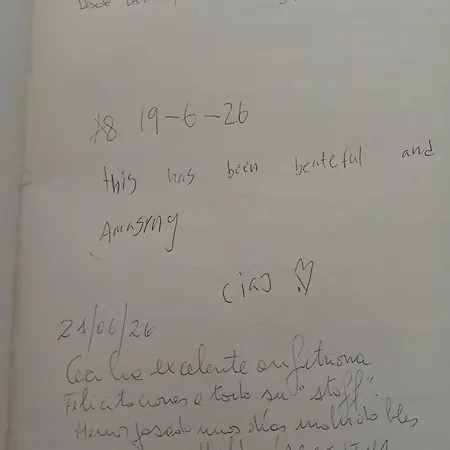 18 19-6-26
this has been beateful and
Amasing
ciao
21/06/26
Cecilia excelente anfitriona
Felicitaciones a todo su "stoff".
Hemos pasado unos días inolvidables